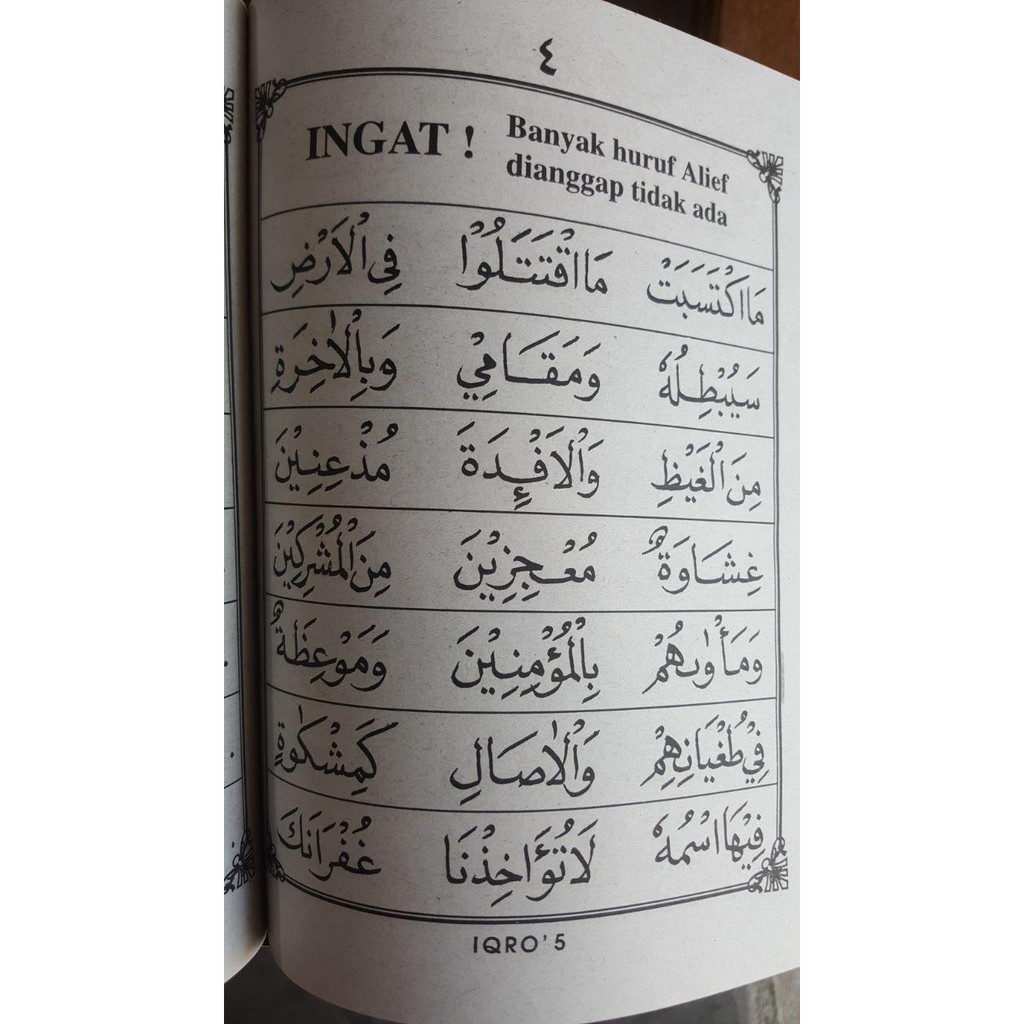 ٤
INGAT !
Banyak huruf Alief
dianggap tidak ada
مَا اكْتَسَبَتْ مَا اقْتَتَلُوْا فِى الْاَرْضِ
سَيُبْطِلُهٗ وَمَقَامِيْ وَبِالْاٰخِرَةِ
مِنَ الْغَيْظِ وَالْاَفْـِٕدَةَ مُذْعِنِيْنَ
غِشَاوَةٌ مُعْجِزِيْنَ مِنَ الْمُشْرِكِيْنَ
وَمَأْوٰىهُمْ بِالْمُؤْمِنِيْنَ وَمَوْعِظَةٌ
فِيْ طُغْيَانِهِمْ وَالْاٰصَالِ كَمِشْكٰوةٍ
فِيْهَا اسْمُهٗ لَا تُؤَاخِذْنَا غُفْرَانَكَ
IQRO' 5